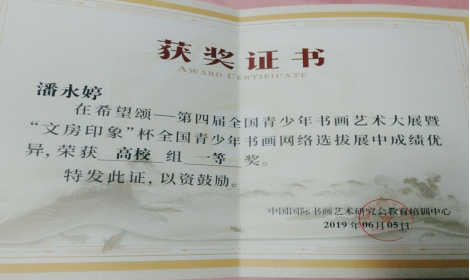 获奖证书
AWARD CERTIFICATE
潘永婷
在希望颂—第四届全国青少年书画艺术大展暨
“文房印象”杯全国青少年书画网络选拔展中成绩优
异，荣获 高校 组 一等 奖。
特发此证，以资鼓励。
中国国际书画艺术研究会教育培训中心
2019年06月05日